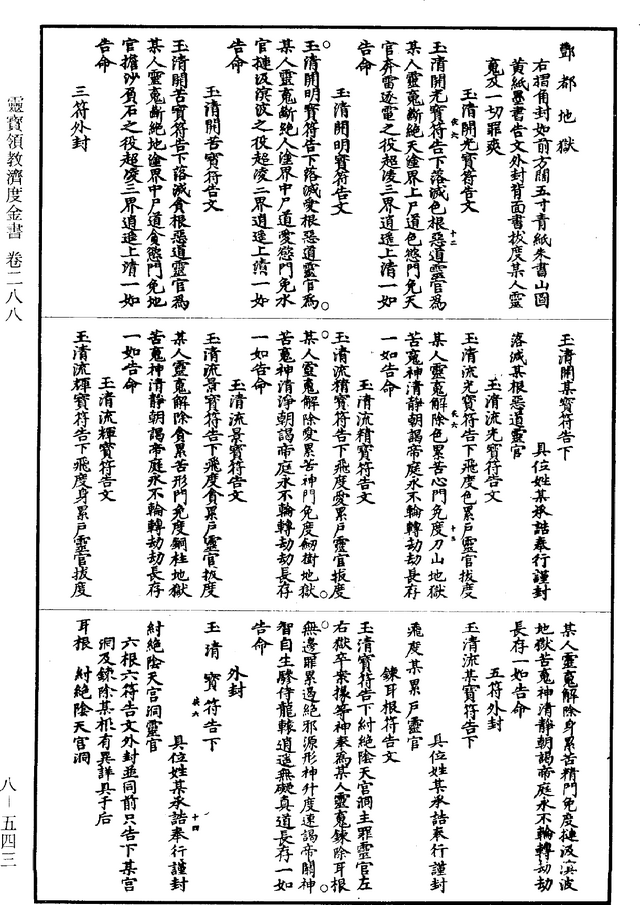 靈寶領教濟度金書 卷二八八
八—五四三
酆都地獄
右摺角封如前方闊五寸青紙朱書山圓
黃紙墨書告文外封背面書拔度某人靈
䰟及一切罪爽
玉清開光寶符告文
玉清開光寶符告下落滅色根惡道靈官為
某人靈䰟斷絕天塗界上尸道色慾門免天
官奔雷逐電之役超凌三界逍遥上清一如
告命
玉清開明寶符告文
玉清開明寶符告下落滅愛根惡道靈官為
某人靈䰟斷絕人塗界中尸道愛慾門免水
官摙汲溟波之役超凌二界逍遥上清一如
告命
玉清開苦寶符告文
玉清開苦寶符告下落滅貪根惡道靈官為
某人靈䰟斷絕地塗界中尸道貪慾門免地
官擔沙負石之役超凌三界逍遥上清一如
告命
三符外封
玉清開某寶符告下
具位姓某承誥奉行謹封
落滅某根惡道靈官
玉清流光寶符告文
玉清流光寶符告下飛度色累尸靈官拔度
某人靈䰟解除色累苦心門免度刀山地獄
苦䰟神清靜朝謁帝庭永不輪轉劫劫長存
一如告命
玉清流精寶符告文
玉清流精寶符告下飛度愛累尸靈官拔度
某人靈䰟解除愛累苦神門免度劒樹地獄
苦䰟神清淨朝謁帝庭永不輪轉劫劫長存
一如告命
玉清流景寶符告文
玉清流景寶符告下飛度貪累尸靈官拔度
某人靈䰟解除貪累苦形門免度銅柱地獄
苦䰟神清靜朝謁帝庭永不輪轉劫劫長存
一如告命
玉清流輝寶符告文
玉清流輝寶符告下飛度身累尸靈官拔度
某人靈䰟解除身累苦精門免度摙汲溟波
地獄苦䰟神清靜朝謁帝庭永不輪轉劫劫
長存一如告命
五符外封
玉清流某寶符告下
具位姓某承誥奉行謹封
飛度某累尸靈官
鍊耳根符告文
玉清寶符告下紂絕陰天宮洞主罪靈官左
右獄卒案掾等神奉為某人靈䰟鍊除耳根
無邊罪累遏絕邪源形神升度速謁帝闕神
智自生驂侍龍轅逍遥無礙真道長存一如
告命
外封
玉清寶符告下
具位姓某承誥奉行謹封
紂絕陰天宮洞靈官
六根六符告文外封並同前只告下某宮
洞及鍊除某根有異詳具于后
耳根 紂絕陰天宮洞